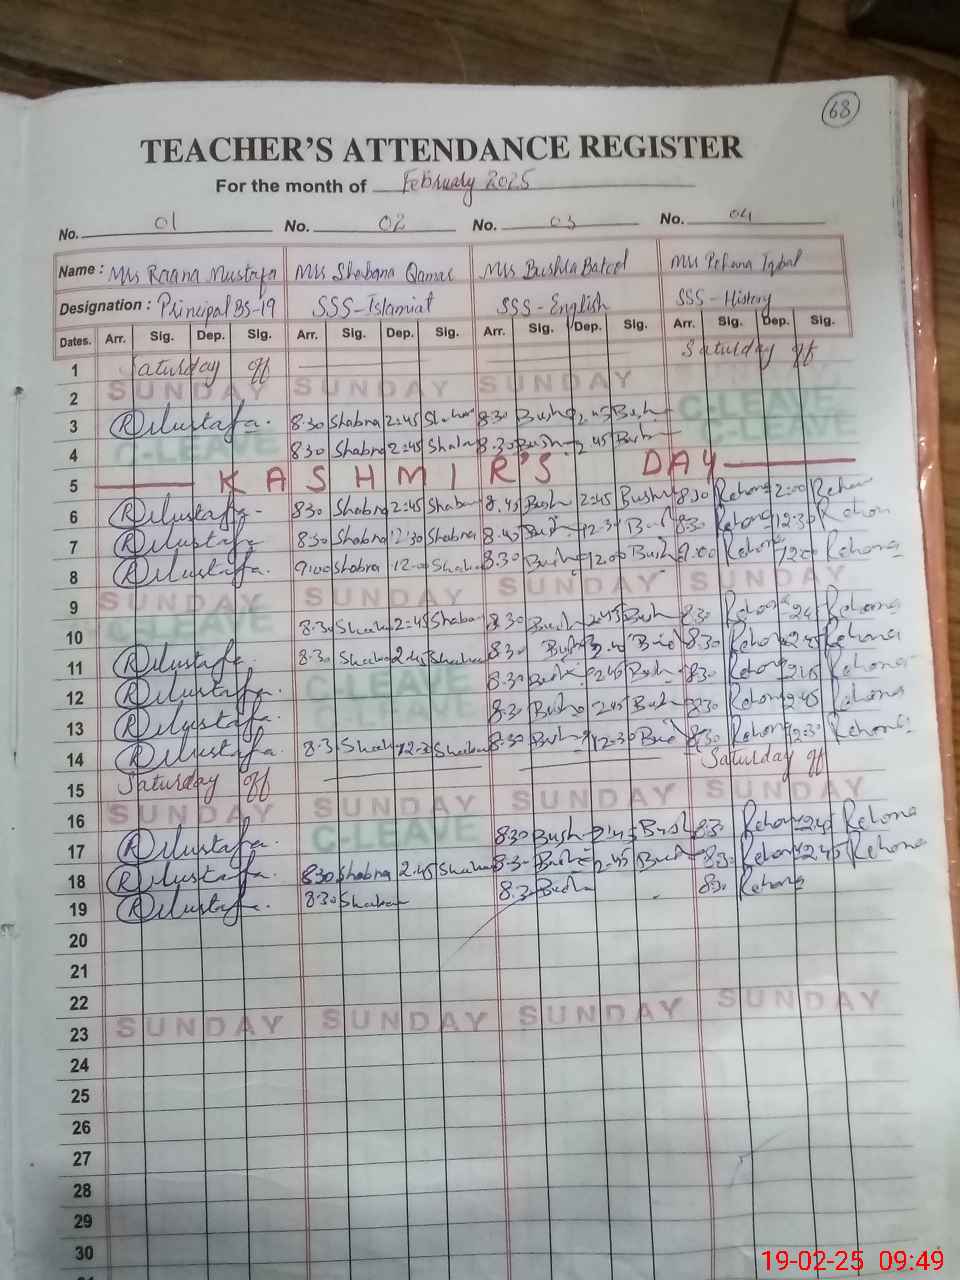 68
TEACHER'S ATTENDANCE REGISTER
For the month of February 2025
No. 01 No. 02 No. 03 No. 04
Name : Mrs Raana Mustafa Mrs Shabana Qamar Mrs Bushra Batool Mrs Rehana Iqbal
Designation : Principal BS-19 SSS-Islamiat SSS-English SSS-History
Dates. Arr. Sig. Dep. Sig. Arr. Sig. Dep. Sig. Arr. Sig. Dep. Sig. Arr. Sig. Dep. Sig.
1 Saturday off Saturday off
2 SUNDAY SUNDAY SUNDAY
3 R Mustafa. 8.30 Shabna 2:45 8.30 Bush 2.45 Bush C-LEAVE
4 C-LEAVE 8.30 Shabna 2:45 Shabna 8.30 Bush 2.45 Bush C-LEAVE
5 KASHMIR'S DAY
6 R Mustafa 8.30 Shabna 2:45 Shabna 8.45 Bush 2:45 Bush 8.30 Rehana 2:00 Rehana
7 R Mustafa 8:30 Shabna 12:30 Shabna 8.40 Bush 12.30 Bush 8.30 Rehana 12:30 Rehana
8 R Mustafa. 9:00 Shabna 8.30 Bush 12.00 Bush 9.00 Rehana 12.00 Rehana
9 SUNDAY SUNDAY SUNDAY SUNDAY
10 C-LEAVE 8.30 2:45 Shabna 8.30 Bush 2.45 Bush 8.30 Rehana Rehana
11 R Mustafa 8.30 2.45 8.30 Bush Bush 8.30 Rehana 2.45 Rehana
12 R Mustafa. C-LEAVE 8.30 Bush 2.45 Bush 8.30 Rehana 2.45 Rehana
13 R Mustafa. C-LEAVE 8.30 Bush 2.45 Bush 8.30 Rehana 2.45 Rehana
14 R Mustafa. 8.30 12.30 8.30 Bush 12.30 8.30 Rehana 12.30 Rehana
15 Saturday off Saturday off
16 SUNDAY SUNDAY SUNDAY SUNDAY
17 R Mustafa. C-LEAVE 8.30 Bush 2:45 Bush 8.30 Rehana 2.45 Rehana
18 R Mustafa. 8.30 Shabna 2.45 8.30 Bush 2.45 Bush 8.30 Rehana 2.45 Rehana
19 R Mustafa. 8.30 Shaban 8.30 Bush 8.30 Rehana
20
21
22
23 SUNDAY SUNDAY SUNDAY SUNDAY
24
25
26
27
28
29
30
19-02-25 09:49